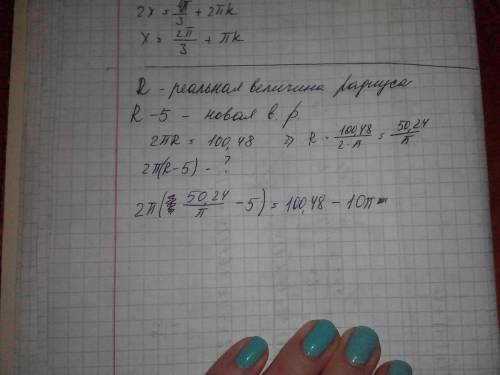 2x = 4π/3 + 2πk
x = 2π/3 + πk
R - реальная величина радиуса
R - 5 - новая в. р.
2πR = 100,48 ⇒ R = 100,48/2·π = 50,24/π
2π(R-5) - ?
2π( 50,24/π - 5) = 100,48 - 10π